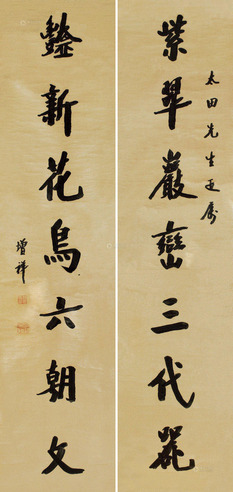 太田先生正屬
紫翠巖巒三代器
新花鳥六朝文
增祥